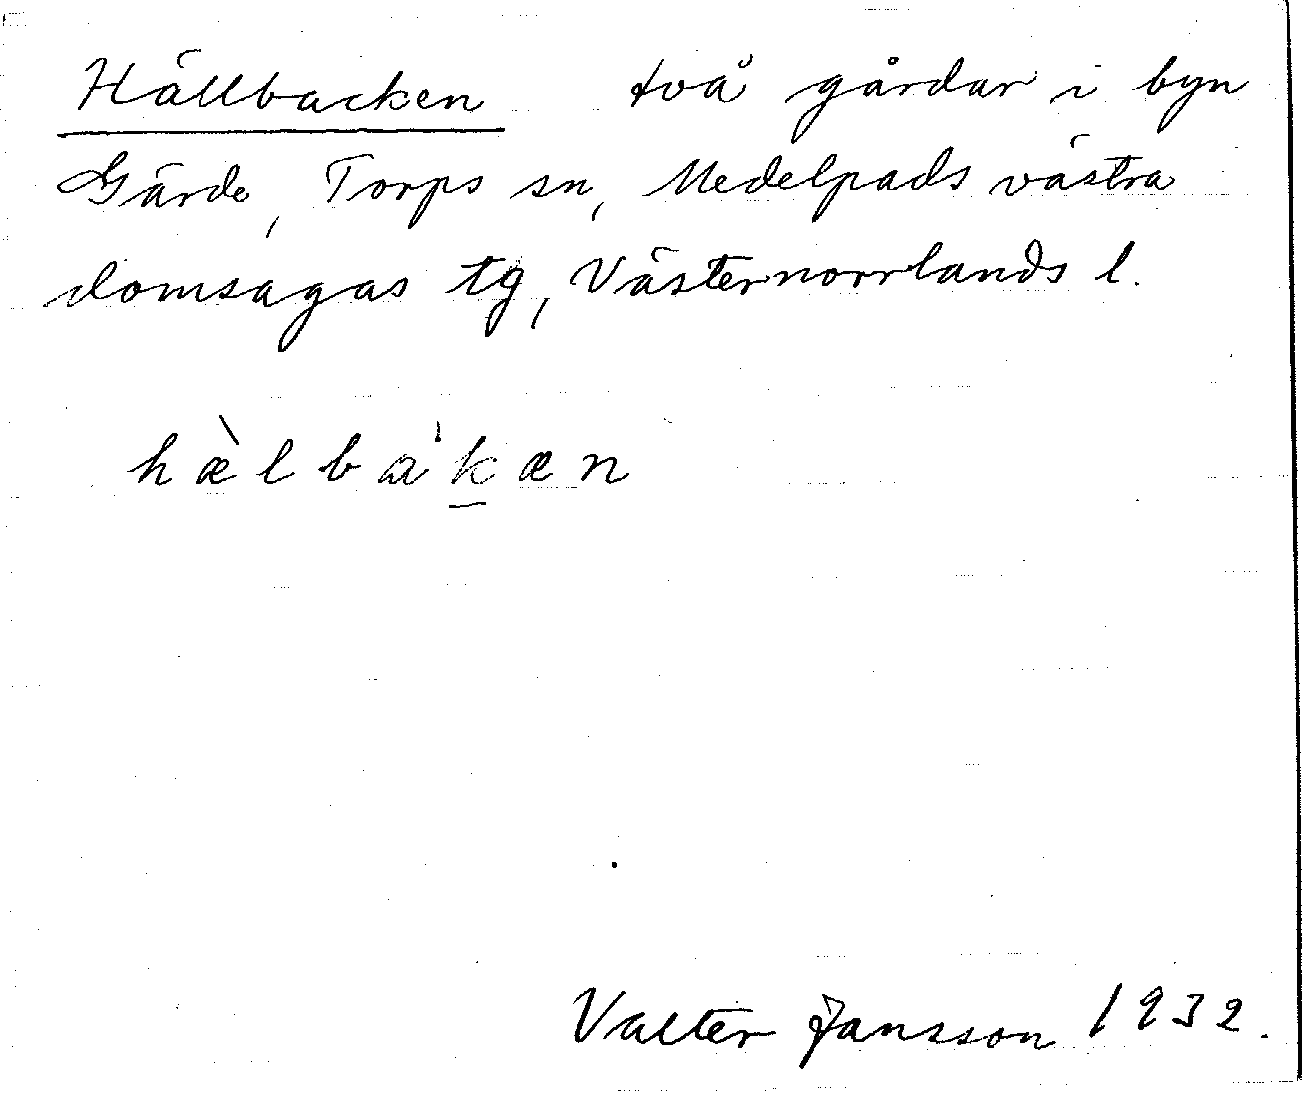 Hällbacken två gårdar i byn
Gärde, Torps sn, Medelpads västra
domsagas tg, Västernorrlands l.
hæ̀lba̍kæn
Valter Jansson 1932.